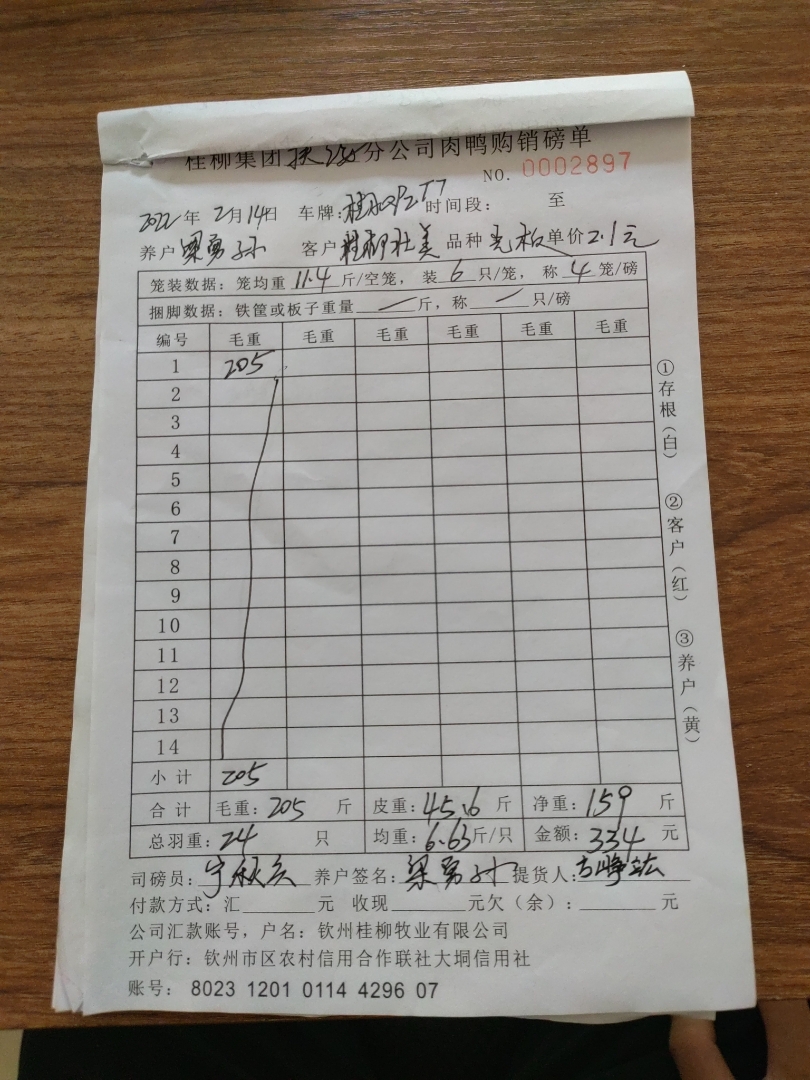 桂柳集团扶绥分公司肉鸭购销磅单
NO. 0002897
2022年2月14日 车牌: 时间段: 至
养户 梁勇 客户 桂柳社美 品种 毛板 单价 2.1元
笼装数据: 笼均重 11.4 斤/空笼, 装 6 只/笼, 称 4 笼/磅
捆脚数据: 铁筐或板子重量 — 斤, 称 — 只/磅
编号 毛重 毛重 毛重 毛重 毛重 毛重
1 205
2
3
4
5
6
7
8
9
10
11
12
13
14
小计 205
合计 毛重: 205 斤 皮重: 45.6 斤 净重: 159 斤
总羽重: 24 只 均重: 6.63 斤/只 金额: 334 元
司磅员: 养户签名: 梁勇 提货人:
付款方式: 汇 元 收现 元欠(余): 元
公司汇款账号, 户名: 钦州桂柳牧业有限公司
开户行: 钦州市区农村信用合作联社大垌信用社
账号: 8023 1201 0114 4296 07
①存根(白) ②客户(红) ③养户(黄)